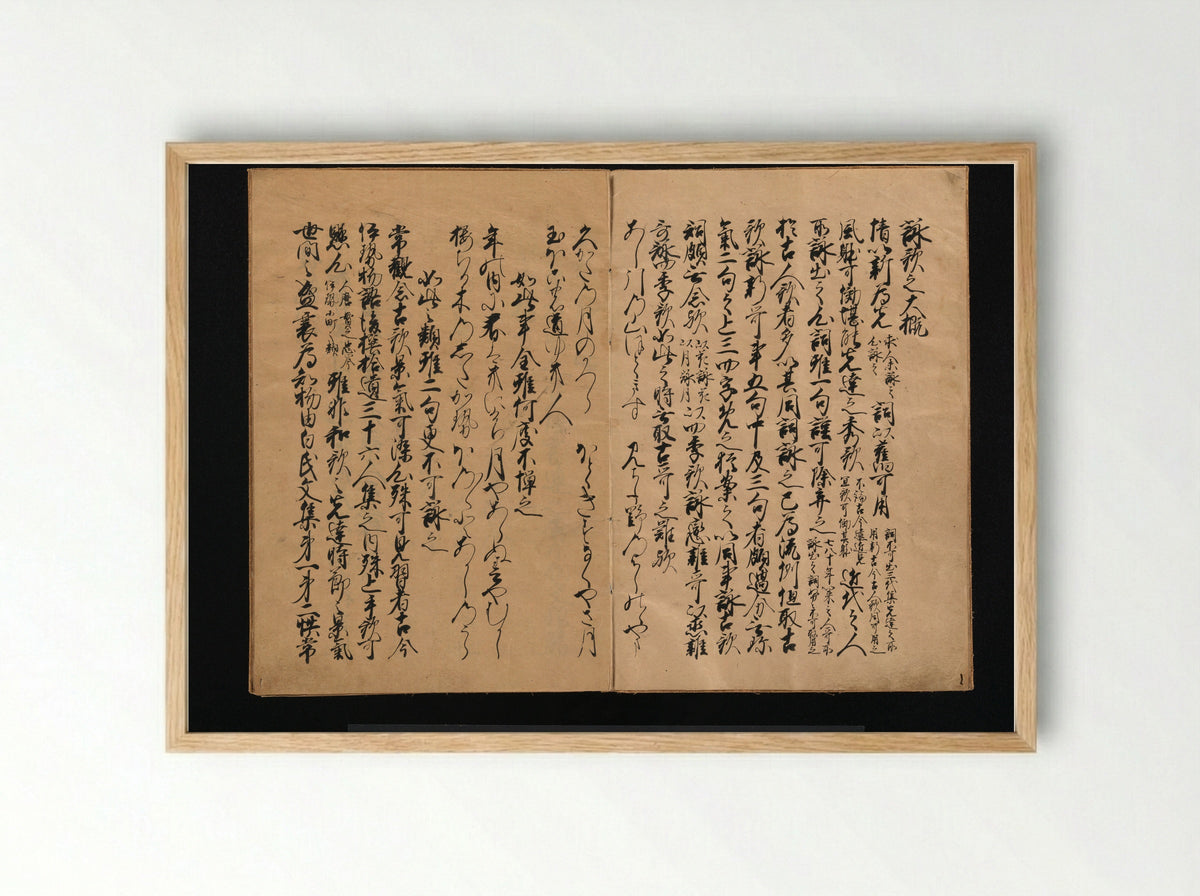 詠歌之大概
情以新為先 求人未詠之心詠之 詞以舊可用 詞不可出三代集先達之所用新古今古人歌同可用之
風躰可効堪能先達之秀歌 不論古今遠近見宜歌可効其躰 近代之人
所詠出之心詞雖一句謹可除弃之 七八十年以来之人哥所詠出之詞努々不可取用之
於古人歌者多以其同詞詠之已為流例但取古
歌詠新哥事五句中及三句者頗過分無珍
氣二句之上三四字免之猶案之以同事詠古歌
詞頗無念歟 以花詠花以月詠月 以四季歌詠戀雜哥以戀雜
哥詠四季歌如此之時無取古哥之難歟
あし引の山ほとゝきす みよし野のよしのゝやま
久かたの月のかつら ほとゝきすなくやさ月
玉ほこの道ゆき人
如此事全雖何度不憚之
年の内に春はきにけり 月やあらぬ春やむかし
桜ちる木のしたかせ ほの〱とあかしのうら
如此之類雖二句更不可詠之
常觀念古歌景氣可染心殊可見習者古今
伊勢物語後撰拾遺三十六人集之内殊上手歌可
懸心 人麿貫之忠岑伊勢小町等類 雖非和歌之先達時節之景氣
世間之盛衰為知物由白氏文集第一第二帙常